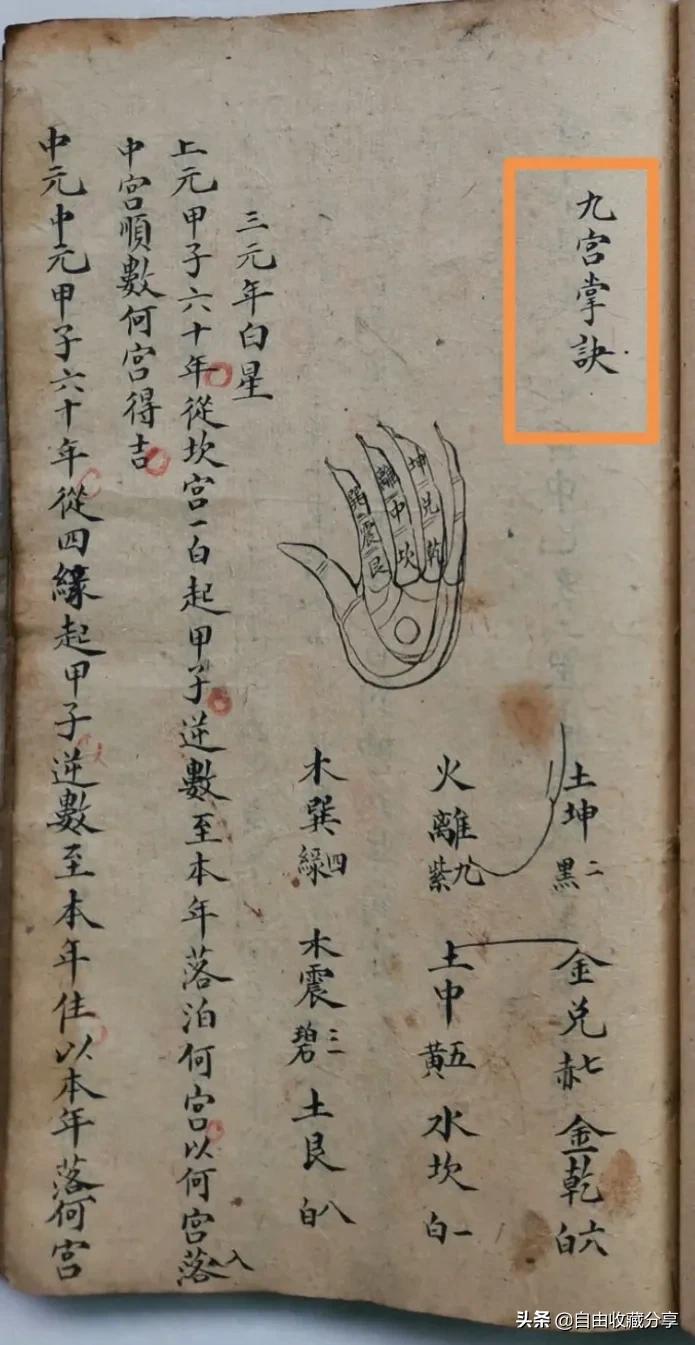 九宫掌訣
坤 兑 乾
離 中 坎
巽 震 艮
土坤 二黑 金兑 七赤 金乾 六白
火離 九紫 土中 五黄 水坎 一白
木巽 四綠 木震 三碧 土艮 八白
三元年白星
上元甲子六十年從坎宮一白起甲子逆數至本年落泊何宮以何宮落入
中宮順數何宮得吉
中元中元甲子六十年從四緣起甲子逆數至本年住以本年落何宮
头条 @自由收藏分享